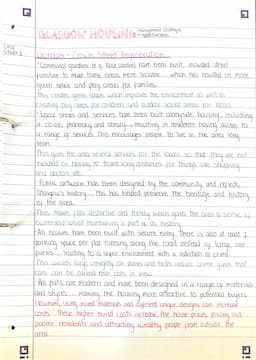 GLASGOW HOUSING- Management strategies
Case
Study 1
Domain - Crown Street Regeneration
· Communal gardens (e.g. Rose Garden) have been built, included street
furniture to make these areas more sociable ... which has resulted in more
green space and play areas for families.
This creates green space which improves the environment as well as
creating play areas for children and outdoor social areas for locals.
· Local shops and services have been built alongside housing, including
a co-op, pharmacy and library ... resulting in residents having access to
a range of services. This encourages people to live in the area long
term.
This gives the area several services for the locals so that they are not
isolated or having to travel long distances for things like shopping
and doctors etc.
· Public artwork has been designed by the community and reflects
Glasgow's history ... this has helped preserve the heritage and history
of the area.
This makes flats distinctive and trendy which gives the area a sense of
ownership whilst maintaining a part of its history.
· All houses have been built with secure entry. There is also at least 1
parking space per flat running along the road instead of large car
parks ... leading to a safer environment with a reduction of crime.
This avoids large unsightly car parks and helps reduce crime given that
cars can be parked near flats in view.
· All flats are modern and have been designed in a range of materials
and styles ... making the housing more attractive to potential buyers.
However, using mixed materials and different unique designs can increase
costs. These higher build costs increase the house prices, pricing out
poorer residents and attracting wealthy people from outside the
area.